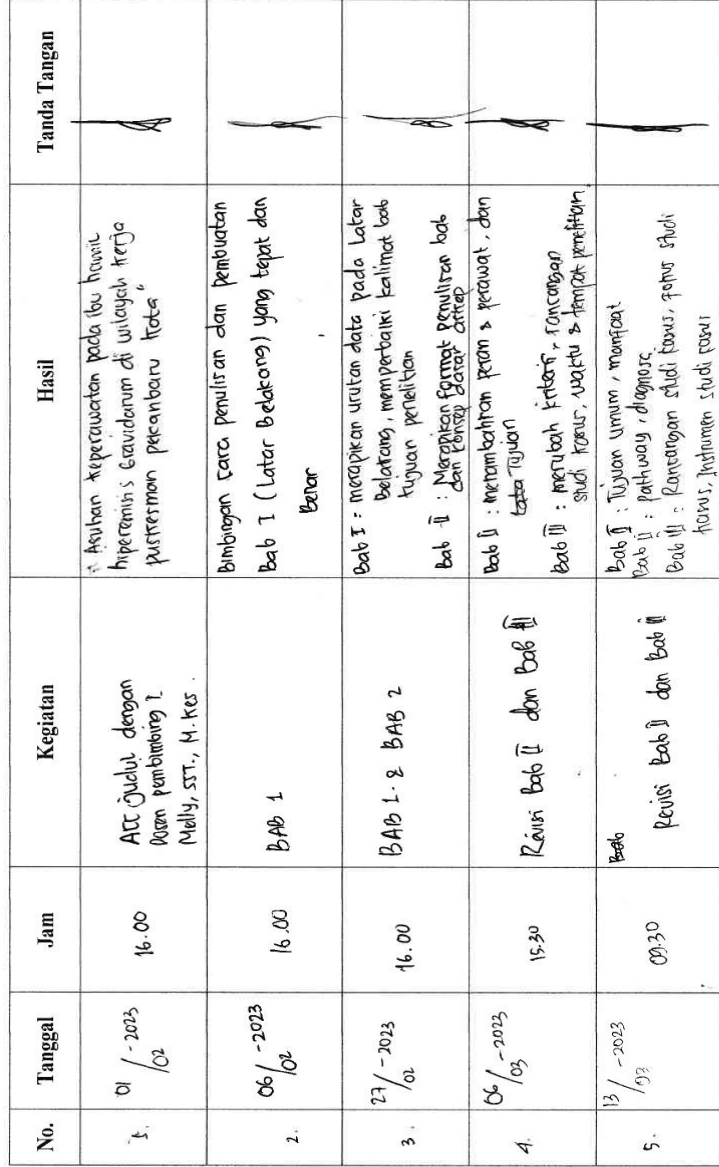 No. Tanggal Jam Kegiatan Hasil Tanda Tangan
1. 01/02-2023 16.00
Acc judul dengan
Dosen pembimbing 1
Melly, SST., M.Kes.
"Asuhan Keperawatan pada ibu hamil
hiperemisis Gravidarum di wilayah kerja
puskesmas pekanbaru kota"
2. 06/02-2023 16.00 BAB 1
Bimbingan cara penulisan dan pembuatan
Bab I (Latar Belakang) yang tepat dan
Benar
3. 27/02-2023 16.00 BAB 1 & BAB 2
Bab I : merapikan urutan data pada Latar
Belakang, memperbaiki kalimat bab
tujuan penelitian
Bab II : Merapikan format penulisan bab
dan konsep dasar
4. 06/03-2023 15.30 Revisi Bab II dan Bab III
Bab II : menambahkan peran & perawat, dan
Tujuan
bab III : merubah kriteri, rancangan
studi kasus, waktu & tempat penelitian.
5. 13/03-2023 09.30
Bab
Revisi Bab II dan Bab III
Bab I : Tujuan umum, manfaat
Bab II : Pathway, diagnosa
Bab III : Rancangan studi kasus, fokus studi
kasus, Instrumen studi kasus